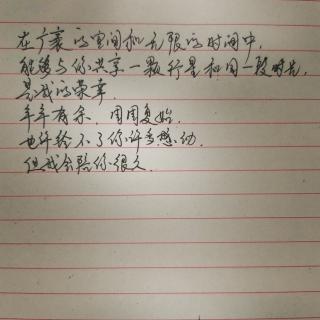 在广袤的空间和无限的时间中,
能够与你共享一颗行星和同一段时光,
是我的荣幸.
年年有余.周周复始.
也许给不了你许多感动.
但我会陪你很久.